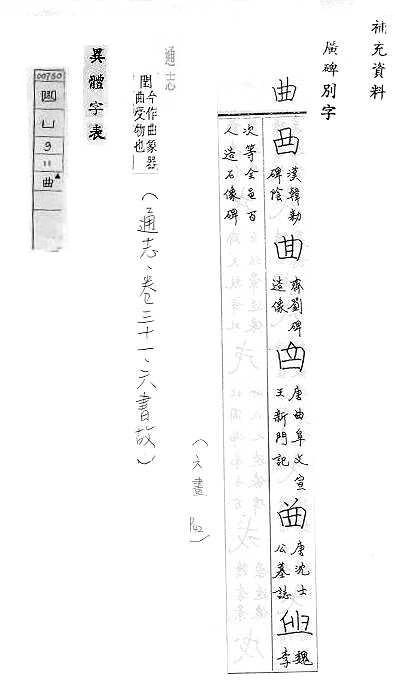 補充資料
廣碑別字
曲
漢韓勑
碑陰
齊劉碑
造像
唐曲阜文宣
王新門記
唐沈士
公墓誌
魏
李
次等全邑百
人造石像碑
通志
今作曲象器
曲受物也
(通志、卷三十一、六書故)
(六書 P42)
異體字表
00750
曲